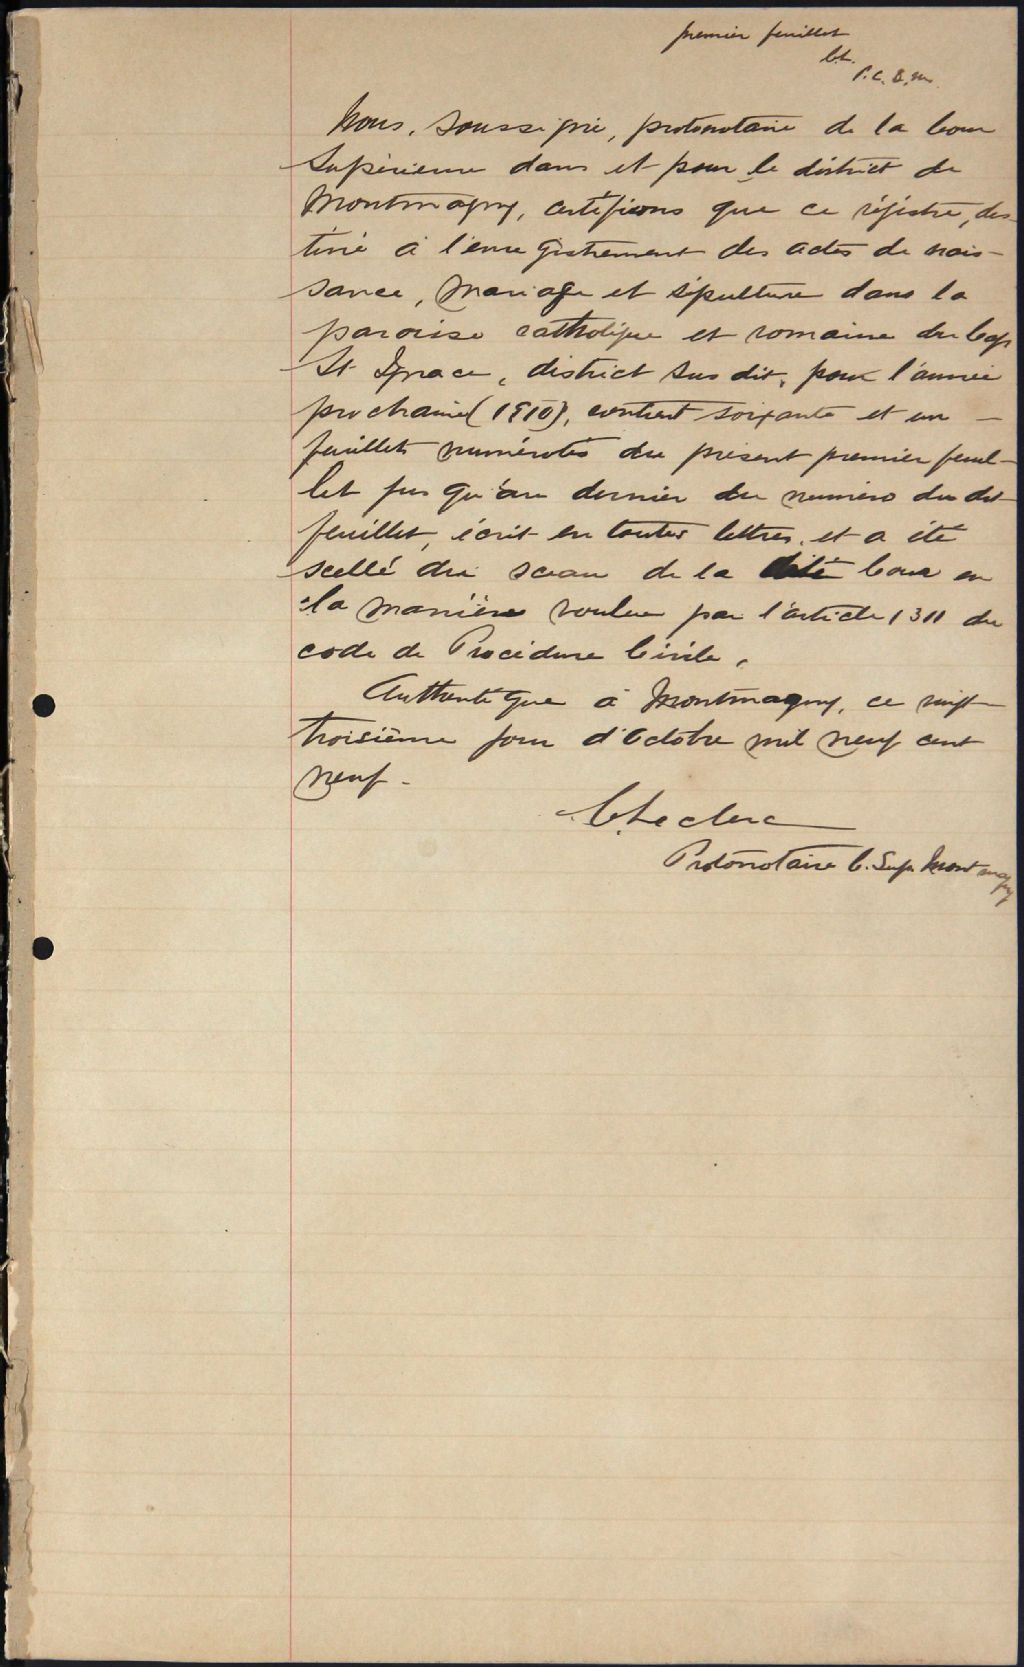 premier feuillet
C.L.
P.C.S.M.
Nous, soussigné, protonotaire de la Cour
Supérieure dans et pour le district de
Montmagny, certifions que ce régistre, des-
tiné à l'enregistrement des actes de nais-
sance, mariage et sépulture dans la
paroisse catholique et romaine du Cap
St Ignace, district susdit, pour l'année
prochaine (1910), contient soixante et un -
feuillets numérotés du présent premier feuil-
let jusqu'au dernier du numéro du dit
feuillet, écrit en toutes lettres, et a été
scellé du sceau de la dite Cour en
la manière voulue par l'article 1311 du
code de Procédure Civile.
Authentiqué à Montmagny, ce vingt-
troisième jour d'Octobre mil neuf cent
neuf -
C. Leclerc
Protonotaire C. Sup. Montmagny